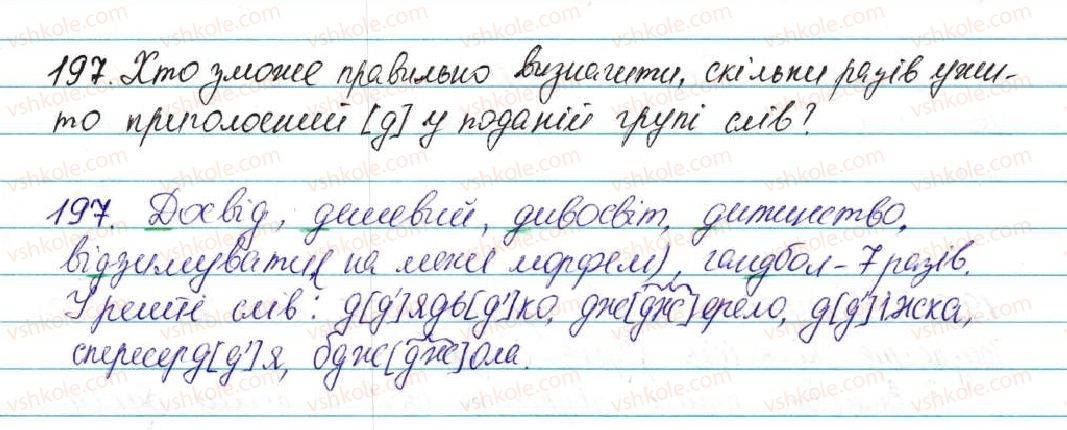 197. Хто зможе правильно визначити, скільки разів ужи-
то приголосний [д] у поданій групі слів?
197. Досвід, дешевий, дивосвіт, дитинство,
відзимувати (на межі морфем), гандбол - 7 разів.
У решті слів: д[д']ядь[д']ко, дж[дж]ерело, д[д']іжка,
спересерд[д']я, бдж[дж]ола.